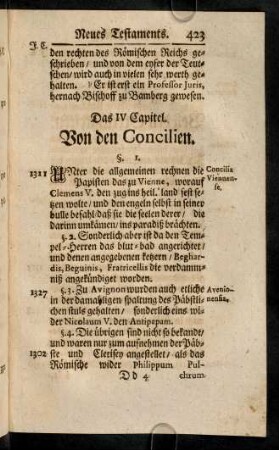 Neues Testaments. 423
J. C.
den rechten des Römischen Reichs ge-
schrieben / und von dem eyfer der Teut-
schen / wird auch in vielen sehr werth ge-
halten. Er ist erst ein Professor Juris,
hernach Bischoff zu Bamberg gewesen.
Das IV Capitel.
Von den Concilien.
§. 1.
1311 UNter die allgemeinen rechnen die Concilia
Papisten das zu Vienne, worauf Viennen-
Clemens V. den zug ins heil. land fest se- se.
tzen wolte / und den engeln selbst in seiner
bulle befahl / daß sie die seelen derer / die
darinn umkämen / ins paradiß brächten.
§. 2. Sonderlich aber ist da den Tem-
pel-Herren das blut-bad angerichtet /
und denen angegebenen ketzern / Beghar-
dis, Beguinis, Fratricellis die verdamm-
niß angekündiget worden.
1327 §. 3. Zu Avignon wurden auch etliche Avenio-
in der damahligen spaltung des Päbstli- nensia.
chen stuls gehalten / sonderlich eins wi-
der Nicolaum V. den Antipapam.
§. 4. Die übrigen sind nicht so bekandt /
und waren nur zum aufnehmen der Päb-
1302 ste und Clerisey angestellet / als das
Römische wider Philippum Pul-
Dd 4 chrum.